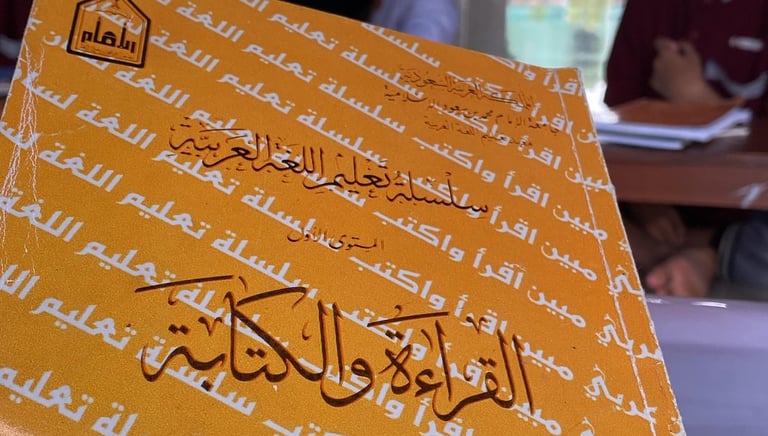 الإمام
المملكة العربية السعودية
جامعة الإمام محمد بن سعود الإسلامية
معهد تعليم اللغة العربية
سلسلة تعليم اللغة العربية
المستوى الأول
القراءة والكتابة
سلسلة تعليم اللغة
لسان عربي مبين اقرأ واكتب